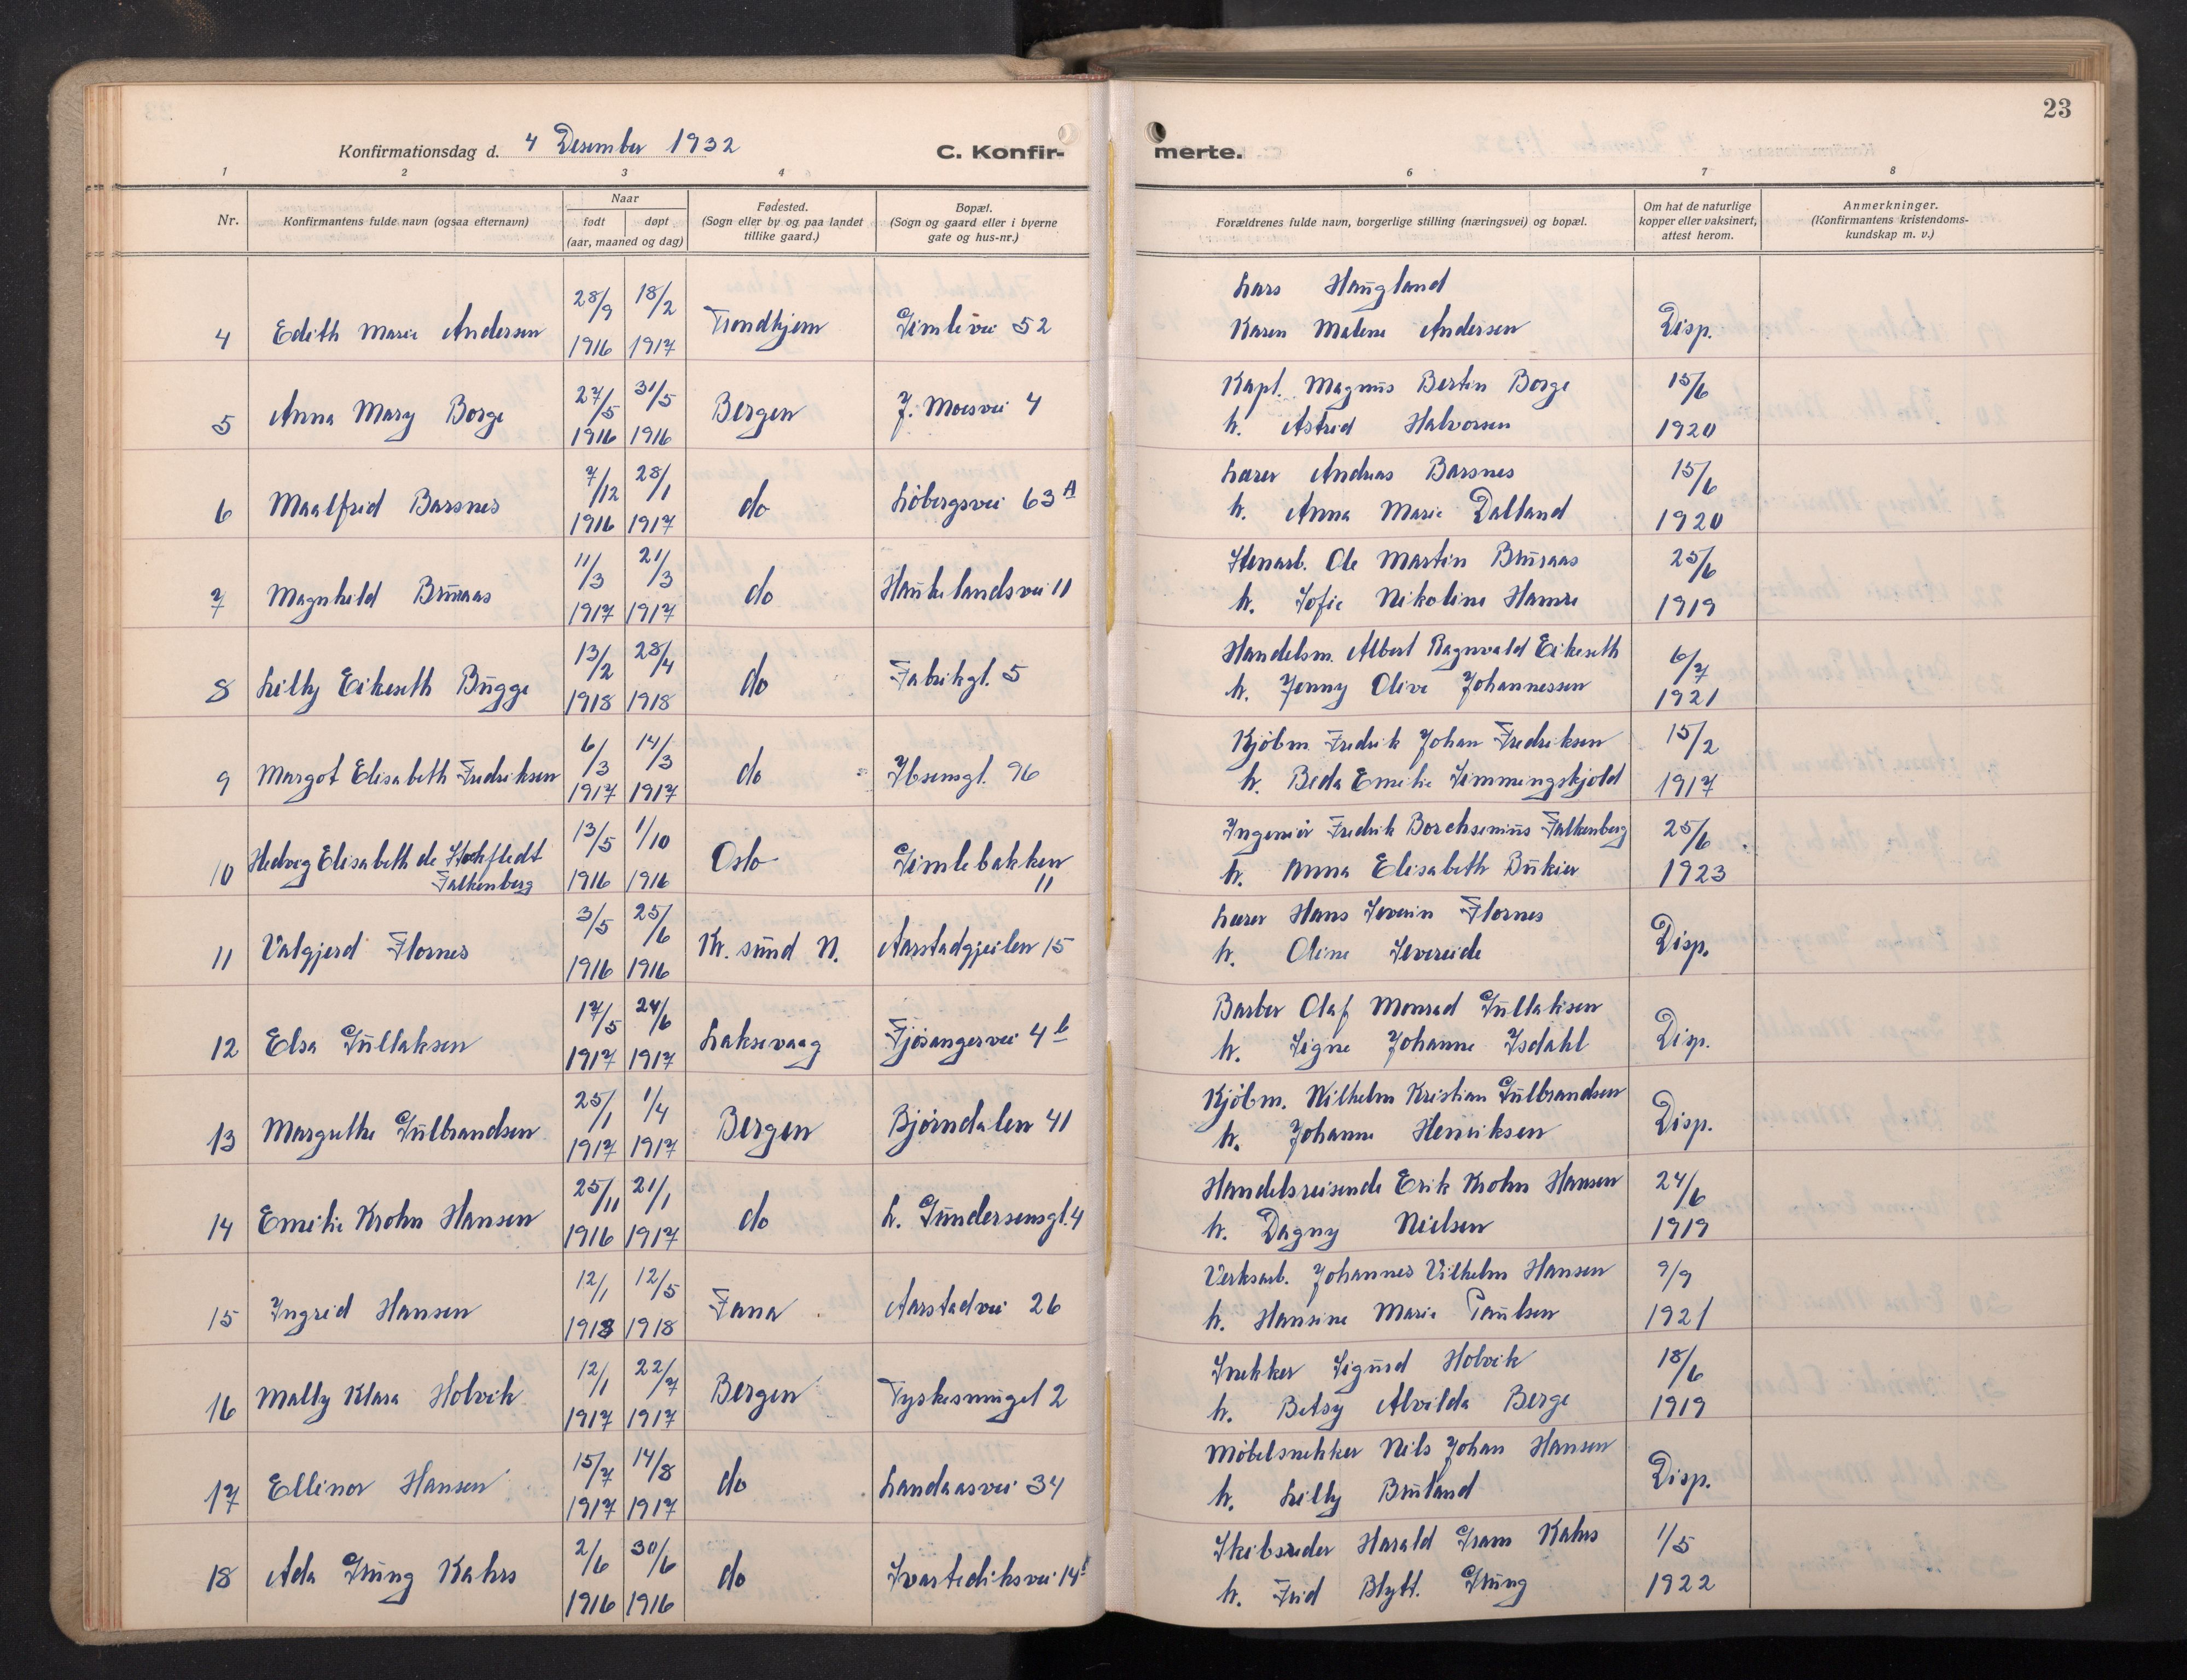 23
Konfirmationsdag d. 4 Desember 1932
C. Konfir-
merte.
1 2 3 4 6 7 8
Nr.
Konfirmantens fulde navn (ogsaa efternavn)
Naar
født døpt
(aar, maaned og dag)
Fødested.
(Sogn eller by og paa landet
tillike gaard.)
Bopæl.
(Sogn og gaard eller i byerne
gate og hus-nr.)
Forældrenes fulde navn, borgerlige stilling (næringsvei) og bopæl.
Om hat de naturlige
kopper eller vaksinert,
attest herom.
Anmerkninger.
(Konfirmantens kristendoms-
kundskap m. v.)
28/9 18/2 Lars Haugland
4 Edith Marie Andersen 1916 1917 Trondhjem Gimlevei 52 Karen Malene Andersen Disp.
27/5 31/5 Kapt. Magnus Bertin Borge 15/6
5 Anna Mary Borge 1916 1916 Bergen J. Moesvei 4 h. Astrid Halvorsen 1920
7/12 28/1 Lærer Andreas Barsnes 15/6
6 Maalfrid Barsnes 1916 1917 do Løbergsvei 63 A h. Anna Marie Dalland 1920
11/3 21/3 Stenarb. Ole Martin Bruraas 25/6
7 Magnhild Bruraas 1917 1917 do Haukelandsvei 11 h. Sofie Nikoline Hamre 1919
13/2 28/4 Handelsm. Albert Ragnvald Eikeseth 6/7
8 Lilly Eikeseth Bugge 1918 1918 do Fabrikgt. 5 h. Jenny Olive Johannessen 1921
6/3 14/3 Kjøbm. Fredrik Johan Fredriksen 15/2
9 Margot Elisabeth Fredriksen 1917 1917 do Ibsensgt. 96 h. Beda Emelie Simmingskjold 1917
13/5 1/10 Ingeniør Fredrik Borchsenius Falkenberg 25/6
10 Hedvig Elisabeth de Stockfledt
Falkenberg 1916 1916 Oslo Gimlebakken
11 h. Anna Elisabeth 1923
3/5 25/6 Lærer Hans Severin Flornes
11 Valgjerd Flornes 1916 1916 Kr. sund N. Aarstadgjeilen 15 h. Oline Severeide Disp.
17/5 24/6 Barber Olaf Monrad Gullaksen
12 Elsa Gullaksen 1917 1917 Laksevaag Fjøsangervei 4 b h. Signe Johanne Isdahl Disp.
25/1 1/4 Kjøbm. Wilhelm Kristian Gulbrandsen
13 Margrethe Gulbrandsen 1917 1917 Bergen Bjørndalen 41 h. Johanne Henriksen Disp.
25/11 21/1 Handelsreisende Erik Krohn Hansen 24/6
14 Emilie Krohn Hansen 1916 1917 do L. Gundersensgt. 4 h. Dagny Nielsen 1919
12/1 12/5 Verksarb. Johannes Vilhelm Hansen 9/9
15 Ingrid Hansen 1918 1918 Fana Aarstadvei 26 h. Hansine Marie Paulsen 1921
12/1 22/7 Snekker Sigurd Holvik 18/6
16 Mally Klara Holvik 1917 1917 Bergen Tyskesmuget 2 h. Betsy Alvilda Berge 1919
15/7 14/8 Møbelsnekker Nils Johan Hansen
17 Ellinor Hansen 1917 1917 do Landaasvei 34 h. Lilly Bruland Disp.
2/6 30/6 Skibsreder Harald Gram Kahrs 1/5
18 Ada Grung Kahrs 1916 1916 do Svartediksvei 14 h. Frid Blytt. Grung 1922